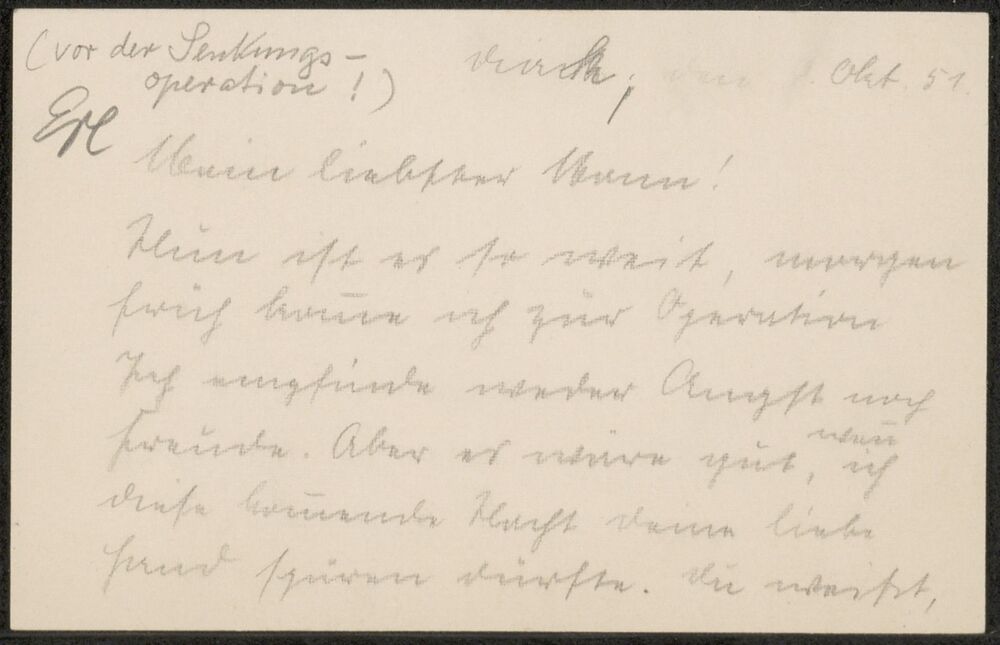 (vor der Senkungs-
operation!)
den Okt. 51.
Erl
Mein liebster Mann!
Nun ist es so weit, morgen
früh kom̅e ich zur Operation
Ich empfinde weder Angst noch
Freude. Aber es wäre gut, wen̅ ich
diese kom̅ende Nacht deine liebe
Hand spüren dürfte. Du weißt,